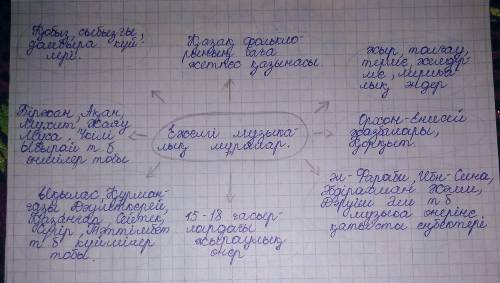 Қобыз, сыбызғы,
домбыра күй-
лері.
Қазақ фолькло-
рының баға
жетпес қазынасы
жыр, толғау,
терме, желдір-
ме, лирика-
лық әндер
Біржан, Ақан,
Мұхит, Жаяу
Мұса, Үкілі
Ыбырай т.б
әншілер тобы
Ежелгі музыка-
лық мұралар.
Орхон-Енисей
жазбалары,
Қорқыт.
Ықылас, Құрман-
ғазы Дәулеткерей,
Қазанғап Сейтек,
Сүгір, Тәттімбет
т.б күйшілер
тобы.
15-18 ғасыр-
лардағы
жыраулық
өнер
әл-Фараби, Ибн-Сина,
Абдірахман Жәми,
Дәруіш Әли т.б
музыка өнеріне
қатысты еңбектері